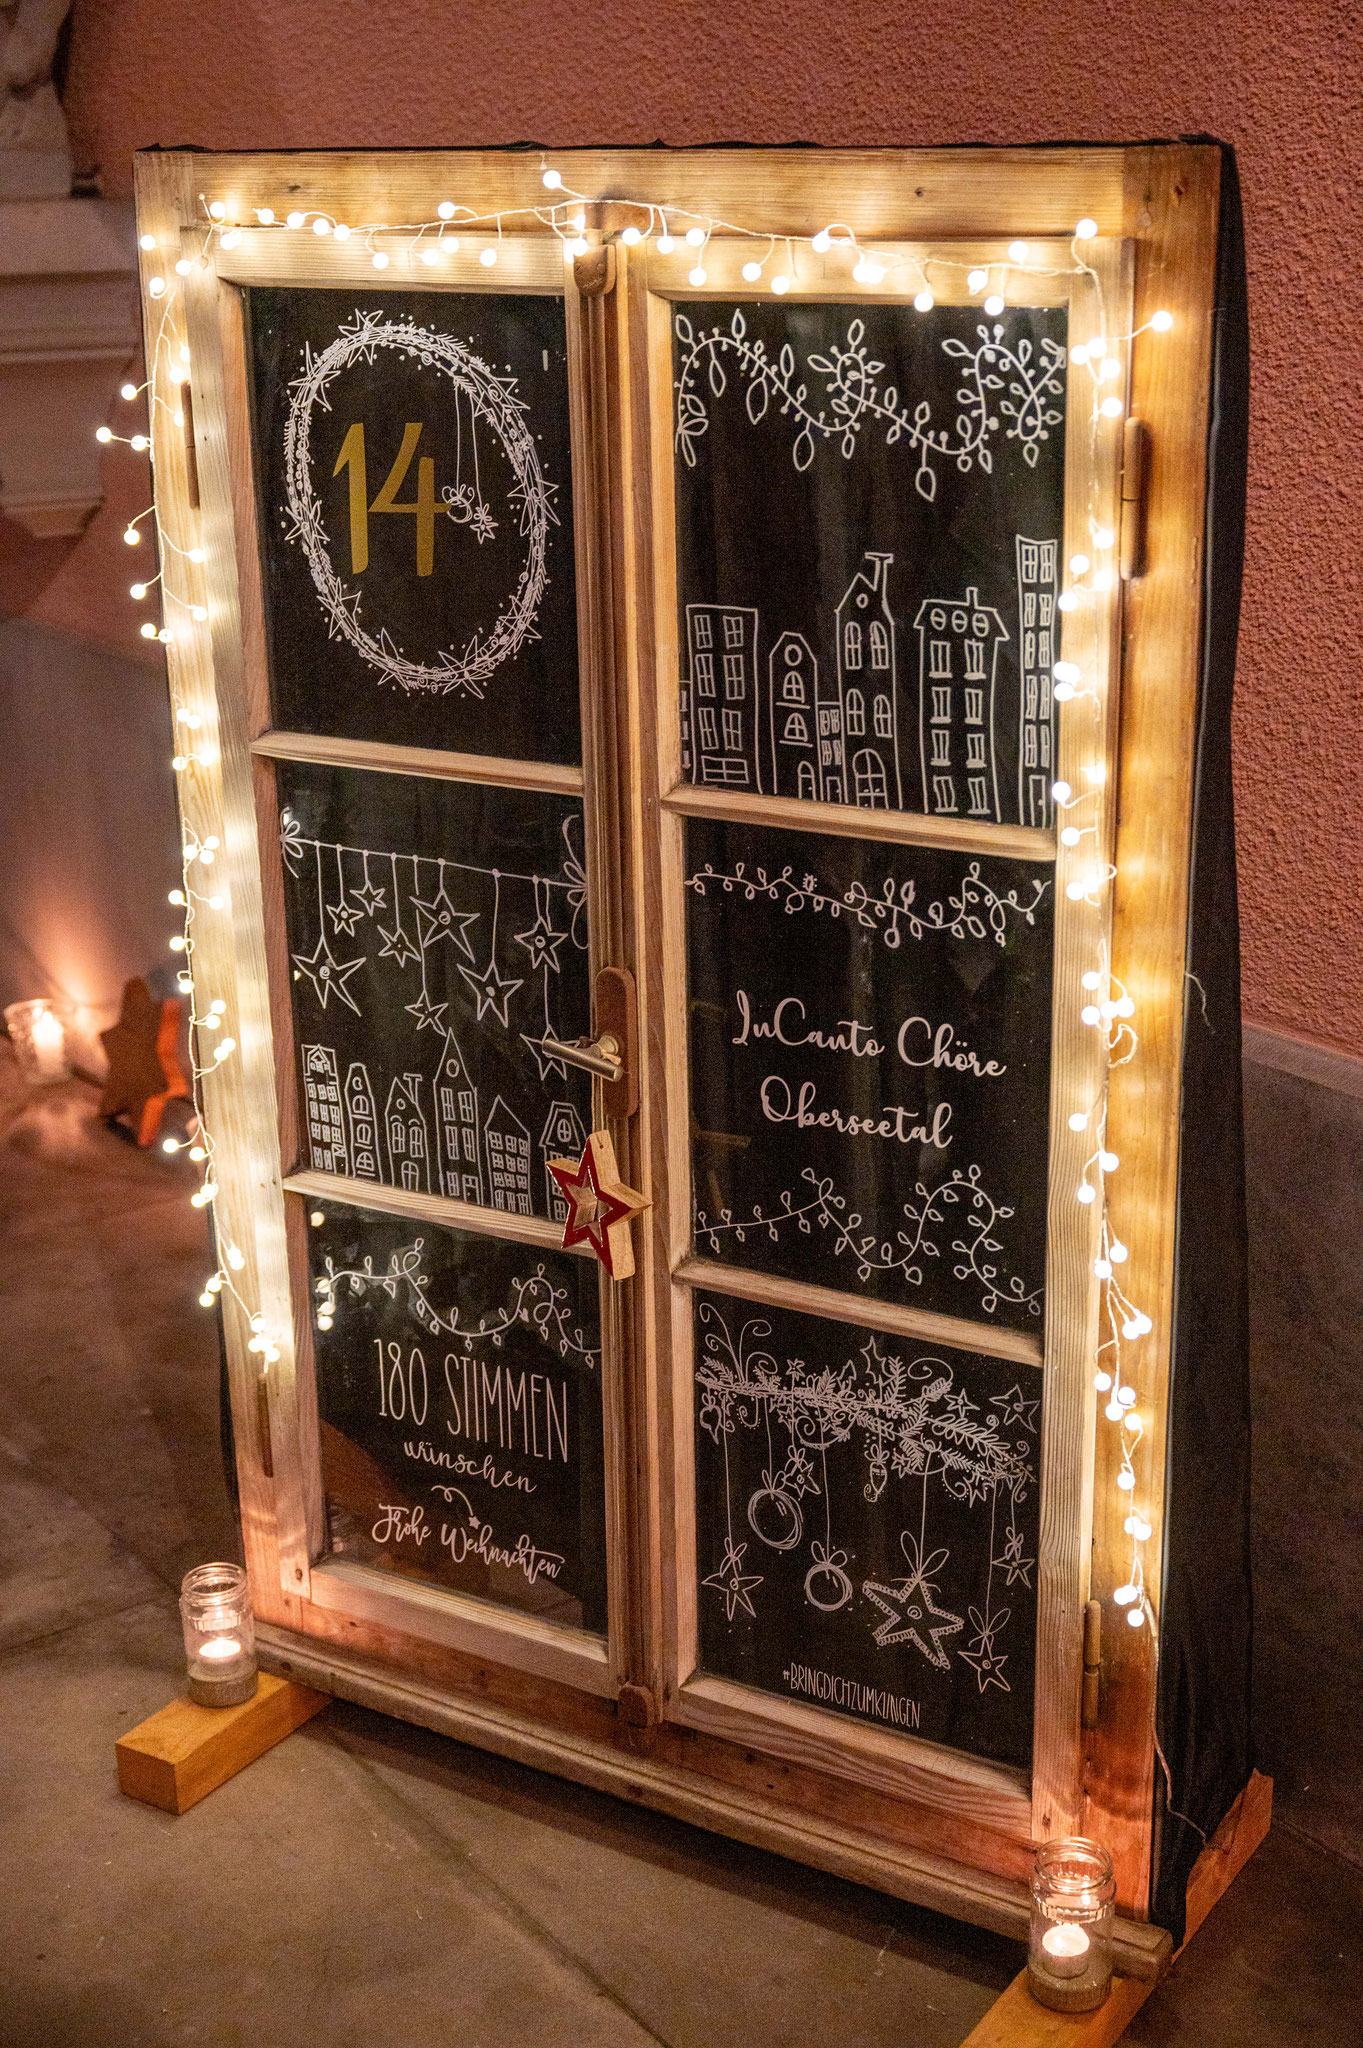 14
InCanto Chöre
Oberseetal
180 STIMMEN
wünschen
Frohe Weihnachten
#BRINGDICHZUMKLINGEN